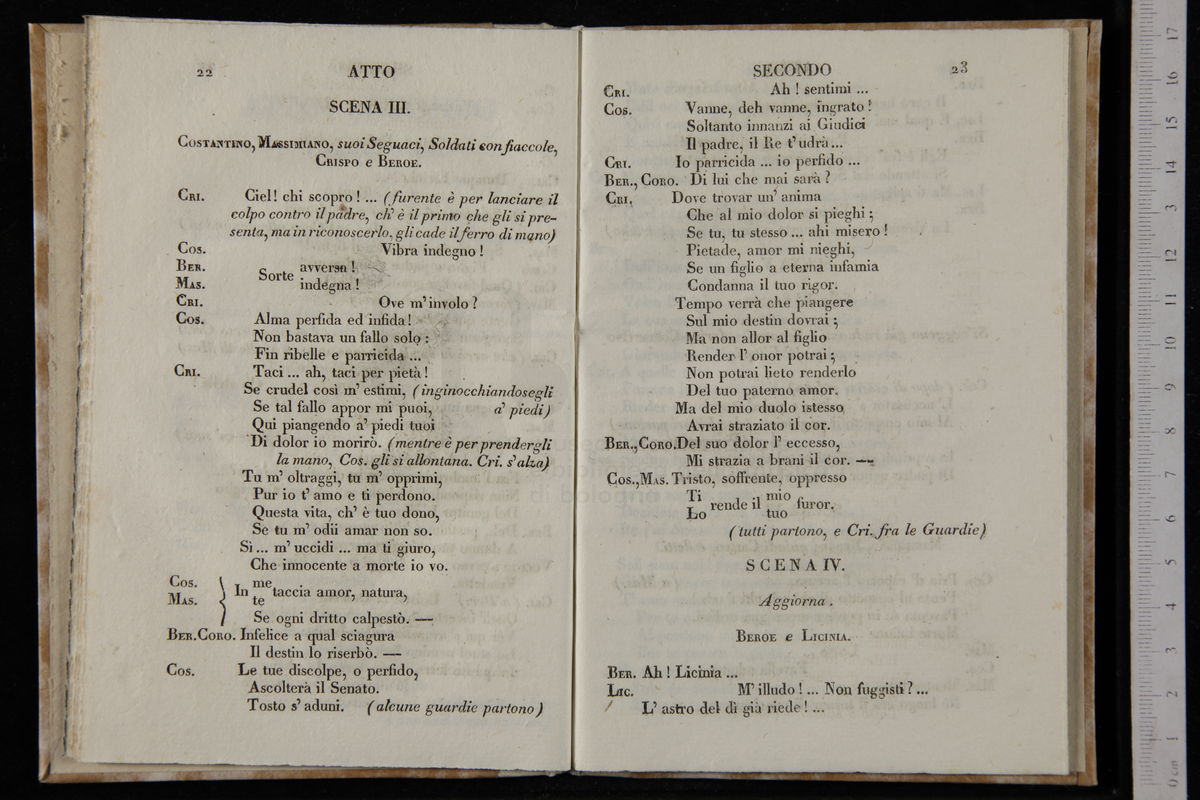 22 ATTO
SCENA III.
COSTANTINO, MASSIMIANO, suoi Seguaci, Soldati con fiaccole,
CRISPO e BEROE.
CRI. Ciel! chi scopro! ... (furente è per lanciare il
colpo contro il padre, ch' è il primo che gli si pre-
senta, ma in riconoscerlo, gli cade il ferro di mano)
COS. Vibra indegno!
BER. Sorte avversa!
MAS. indegna!
CRI. Ove m' involo?
COS. Alma perfida ed infida!
Non bastava un fallo solo:
Fin ribelle e parricida ...
CRI. Taci ... ah, taci per pietà!
Se crudel così m' estimi, (inginocchiandosegli
Se tal fallo appor mi puoi, a' piedi)
Qui piangendo a' piedi tuoi
Di dolor io morirò. (mentre è per prendergli
la mano, Cos. gli si allontana. Cri. s' alza)
Tu m' oltraggi, tu m' opprimi,
Pur io t' amo e ti perdono.
Questa vita, ch' è tuo dono,
Se tu m' odii amar non so.
Si ... m' uccidi ... ma ti giuro,
Che innocente a morte io vo.
COS. In me taccia amor, natura,
MAS. te
Se ogni dritto calpestò. —
BER. CORO. Infelice a qual sciagura
Il destin lo riserbò. —
COS. Le tue discolpe, o perfido,
Ascolterà il Senato.
Tosto s' aduni. (alcune guardie partono)
SECONDO 23
CRI. Ah! sentimi ...
COS. Vanne, deh vanne, ingrato!
Soltanto innanzi ai Giudici
Il padre, il Re t' udrà ...
CRI. Io parricida ... io perfido ...
BER., CORO. Di lui che mai sarà?
CRI. Dove trovar un' anima
Che al mio dolor si pieghi;
Se tu, tu stesso ... ahi misero!
Pietade, amor mi nieghi,
Se un figlio a eterna infamia
Condanna il tuo rigor.
Tempo verrà che piangere
Sul mio destin dovrai;
Ma non allor al figlio
Render l' onor potrai;
Non potrai lieto renderlo
Del tuo paterno amor.
Ma del mio duolo istesso
Avrai straziato il cor.
BER., CORO. Del suo dolor l' eccesso,
Mi strazia a brani il cor. —
COS., MAS. Tristo, soffrente, oppresso
Ti rende il mio furor.
Lo tuo
(tutti partono, e Cri. fra le Guardie)
SCENA IV.
Aggiorna.
BEROE e LICINIA.
BER. Ah! Licinia ...
LIC. M' illudo! ... Non fuggisti? ...
L' astro del dì già riede! ...